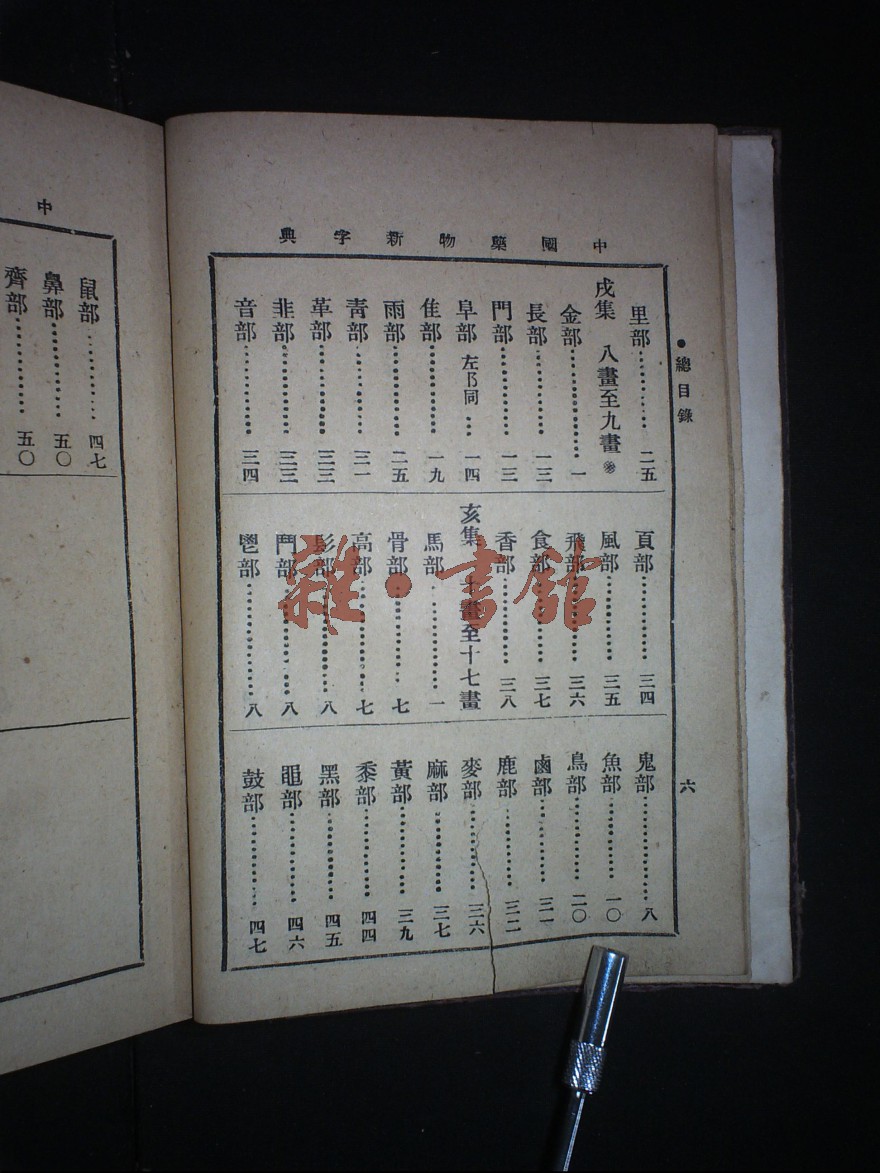 中國藥物新字典
●總目錄
六
里部……二五
戌集 八畫至九畫
金部……一
長部……一三
門部……一三
阜部 左阝同……一四
隹部……一九
雨部……二五
靑部……三一
革部……三三
韭部……三三
音部……三四
頁部……三四
風部……三五
飛部……三六
食部……三七
香部……三八
亥集 十畫至十七畫
馬部……一
骨部……七
高部……七
髟部……八
鬥部……八
鬯部……八
鬼部……八
魚部……一〇
鳥部……二〇
鹵部……三一
鹿部……三二
麥部……三六
麻部……三七
黃部……三九
黍部……四四
黑部……四五
黽部……四六
鼓部……四七
中
鼠部……四七
鼻部……五〇
齊部……五〇
雜·書館